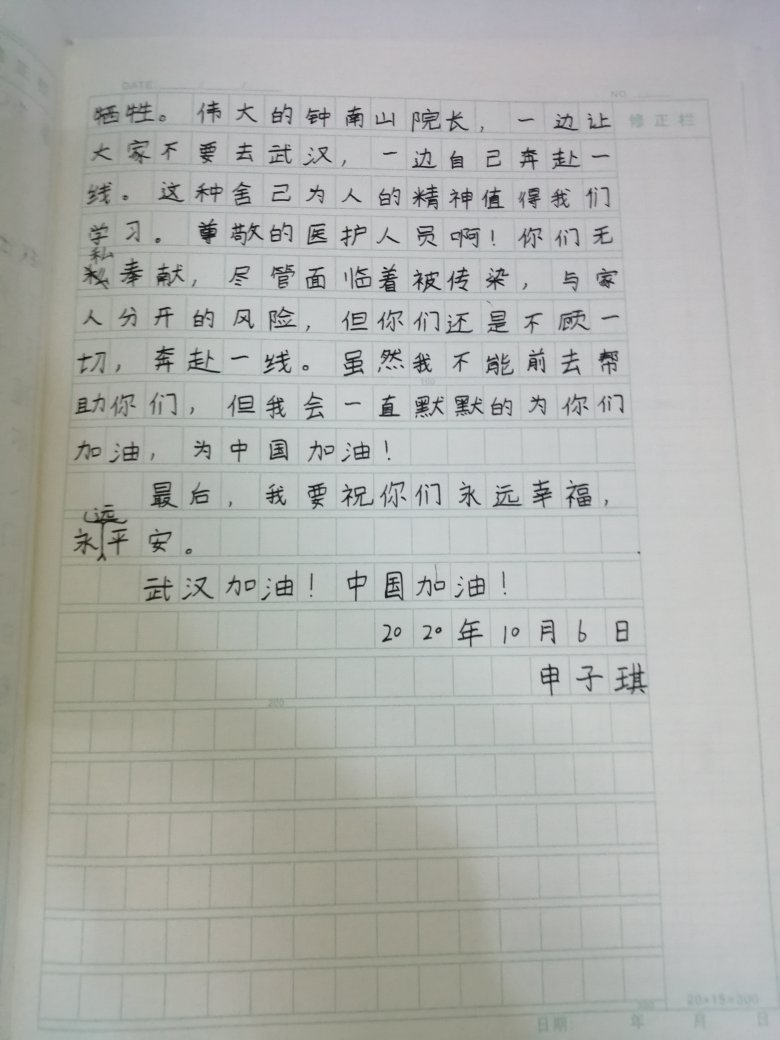 DATE / /
NO.
修正栏
牺牲。伟大的钟南山院长，一边让
大家不要去武汉，一边自己奔赴一
线。这种舍己为人的精神值得我们
学习。尊敬的医护人员啊！你们无
私奉献，尽管面临着被传染，与家
人分开的风险，但你们还是不顾一
切，奔赴一线。虽然我不能前去帮
助你们，但我会一直默默的为你们
100
加油，为中国加油！
最后，我要祝你们永远幸福，
永远平安。
武汉加油！中国加油！
2020年10月6日
申子琪
200
300
20×15=300
日期 年 月 日